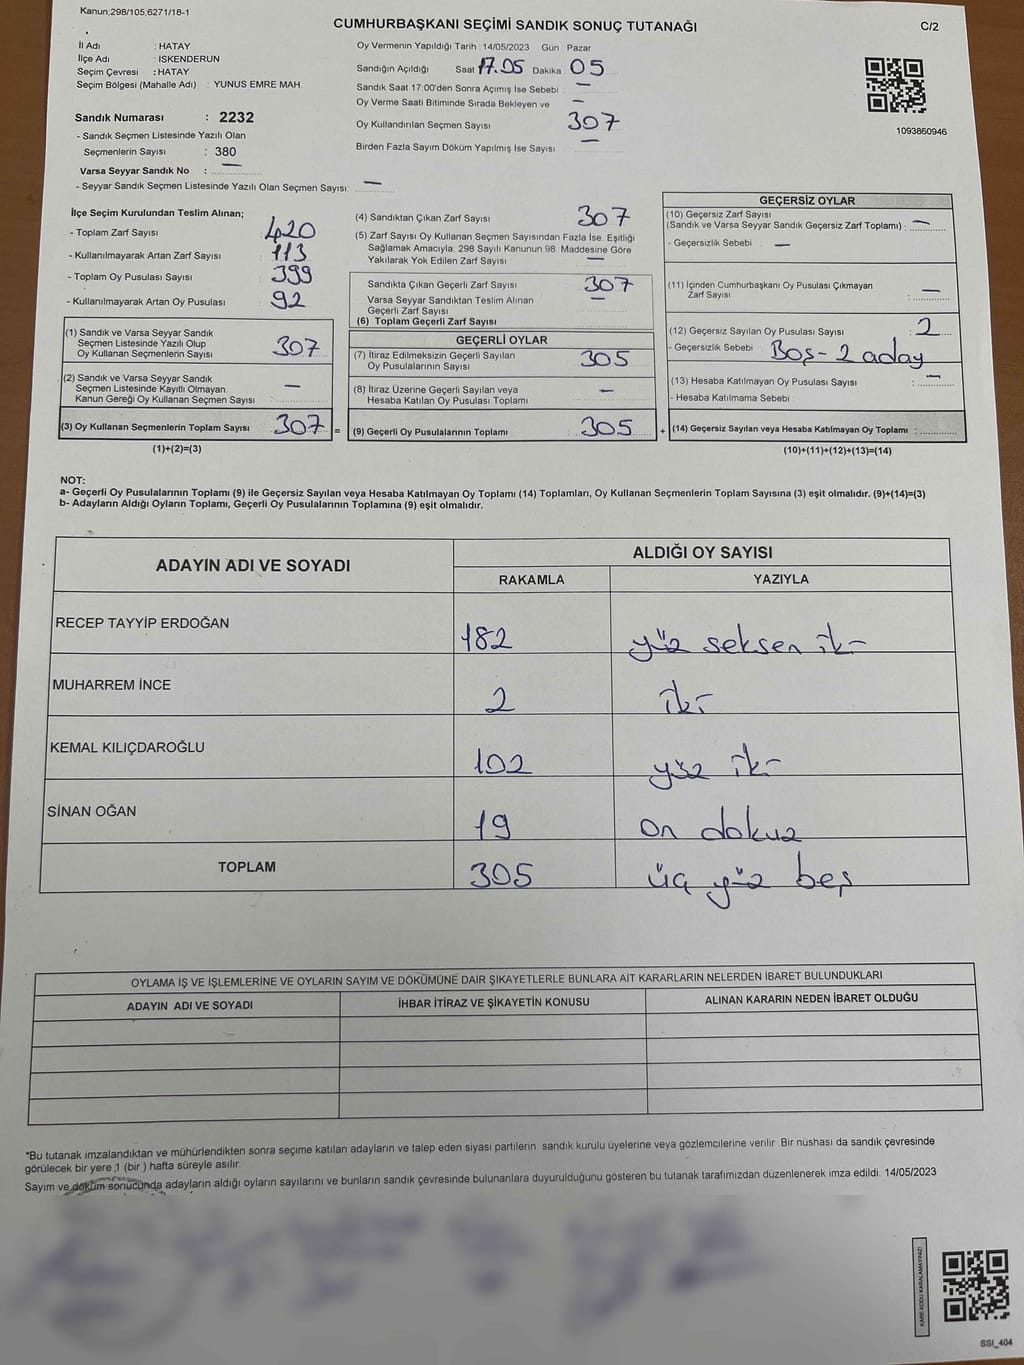 Kanun;298/105,6271/18-1
CUMHURBAŞKANI SEÇİMİ SANDIK SONUÇ TUTANAĞI
C/2
İl Adı : HATAY
İlçe Adı : İSKENDERUN
Seçim Çevresi : HATAY
Seçim Bölgesi (Mahalle Adı) : YUNUS EMRE MAH.
Sandık Numarası : 2232
- Sandık Seçmen Listesinde Yazılı Olan
Seçmenlerin Sayısı : 380
Varsa Seyyar Sandık No : —
- Seyyar Sandık Seçmen Listesinde Yazılı Olan Seçmen Sayısı: —
Oy Vermenin Yapıldığı Tarih : 14/05/2023 Gün : Pazar
Sandığın Açıldığı Saat 17.05 Dakika 05
Sandık Saat 17:00'den Sonra Açımış İse Sebebi : —
Oy Verme Saati Bitiminde Sırada Bekleyen ve —
Oy Kullandırılan Seçmen Sayısı 307
Birden Fazla Sayım Döküm Yapılmış İse Sayısı —
1093860946
İlçe Seçim Kurulundan Teslim Alınan;
- Toplam Zarf Sayısı : 420
- Kullanılmayarak Artan Zarf Sayısı : 113
- Toplam Oy Pusulası Sayısı : 399
- Kullanılmayarak Artan Oy Pusulası : 92
(1) Sandık ve Varsa Seyyar Sandık
Seçmen Listesinde Yazılı Olup
Oy Kullanan Seçmenlerin Sayısı : 307
(2) Sandık ve Varsa Seyyar Sandık
Seçmen Listesinde Kayıtlı Olmayan
Kanun Gereği Oy Kullanan Seçmen Sayısı : —
(3) Oy Kullanan Seçmenlerin Toplam Sayısı 307 =
(1)+(2)=(3)
(4) Sandıktan Çıkan Zarf Sayısı 307
(5) Zarf Sayısı Oy Kullanan Seçmen Sayısından Fazla İse, Eşitliği
Sağlamak Amacıyla; 298 Sayılı Kanunun 98. Maddesine Göre
Yakılarak Yok Edilen Zarf Sayısı —
Sandıkta Çıkan Geçerli Zarf Sayısı : 307
Varsa Seyyar Sandıktan Teslim Alınan —
Geçerli Zarf Sayısı
(6) Toplam Geçerli Zarf Sayısı
GEÇERLİ OYLAR
(7) İtiraz Edilmeksizin Geçerli Sayılan
Oy Pusulalarının Sayısı : 305
(8) İtiraz Üzerine Geçerli Sayılan veya —
Hesaba Katılan Oy Pusulası Toplamı
(9) Geçerli Oy Pusulalarının Toplamı 305 +
GEÇERSİZ OYLAR
(10) Geçersiz Zarf Sayısı
(Sandık ve Varsa Seyyar Sandık Geçersiz Zarf Toplamı) : —
- Geçersizlik Sebebi : —
(11) İçinden Cumhurbaşkanı Oy Pusulası Çıkmayan
Zarf Sayısı : —
(12) Geçersiz Sayılan Oy Pusulası Sayısı : 2
- Geçersizlik Sebebi : Boş - 2 aday
(13) Hesaba Katılmayan Oy Pusulası Sayısı : —
- Hesaba Katılmama Sebebi :
(14) Geçersiz Sayılan veya Hesaba Katılmayan Oy Toplamı :
(10)+(11)+(12)+(13)=(14)
NOT:
a- Geçerli Oy Pusulalarının Toplamı (9) ile Geçersiz Sayılan veya Hesaba Katılmayan Oy Toplamı (14) Toplamları, Oy Kullanan Seçmenlerin Toplam Sayısına (3) eşit olmalıdır. (9)+(14)=(3)
b- Adayların Aldığı Oyların Toplamı, Geçerli Oy Pusulalarının Toplamına (9) eşit olmalıdır.
ADAYIN ADI VE SOYADI
ALDIĞI OY SAYISI
RAKAMLA YAZIYLA
RECEP TAYYİP ERDOĞAN 182 yüz seksen iki
MUHARREM İNCE 2 iki
KEMAL KILIÇDAROĞLU 102 yüz iki
SİNAN OĞAN 19 on dokuz
TOPLAM 305 üç yüz beş
OYLAMA İŞ VE İŞLEMLERİNE VE OYLARIN SAYIM VE DÖKÜMÜNE DAİR ŞİKAYETLERLE BUNLARA AİT KARARLARIN NELERDEN İBARET BULUNDUKLARI
ADAYIN ADI VE SOYADI İHBAR İTİRAZ VE ŞİKAYETİN KONUSU ALINAN KARARIN NEDEN İBARET OLDUĞU
*Bu tutanak imzalandıktan ve mühürlendikten sonra seçime katılan adayların ve talep eden siyasi partilerin sandık kurulu üyelerine veya gözlemcilerine verilir. Bir nüshası da sandık çevresinde
görülecek bir yere 1 (bir ) hafta süreyle asılır.
Sayım ve döküm sonucunda adayların aldığı oyların sayılarını ve bunların sandık çevresinde bulunanlara duyurulduğunu gösteren bu tutanak tarafımızdan düzenlenerek imza edildi. 14/05/2023
KARE KODU KARALAMAYINIZ!
SSI_404